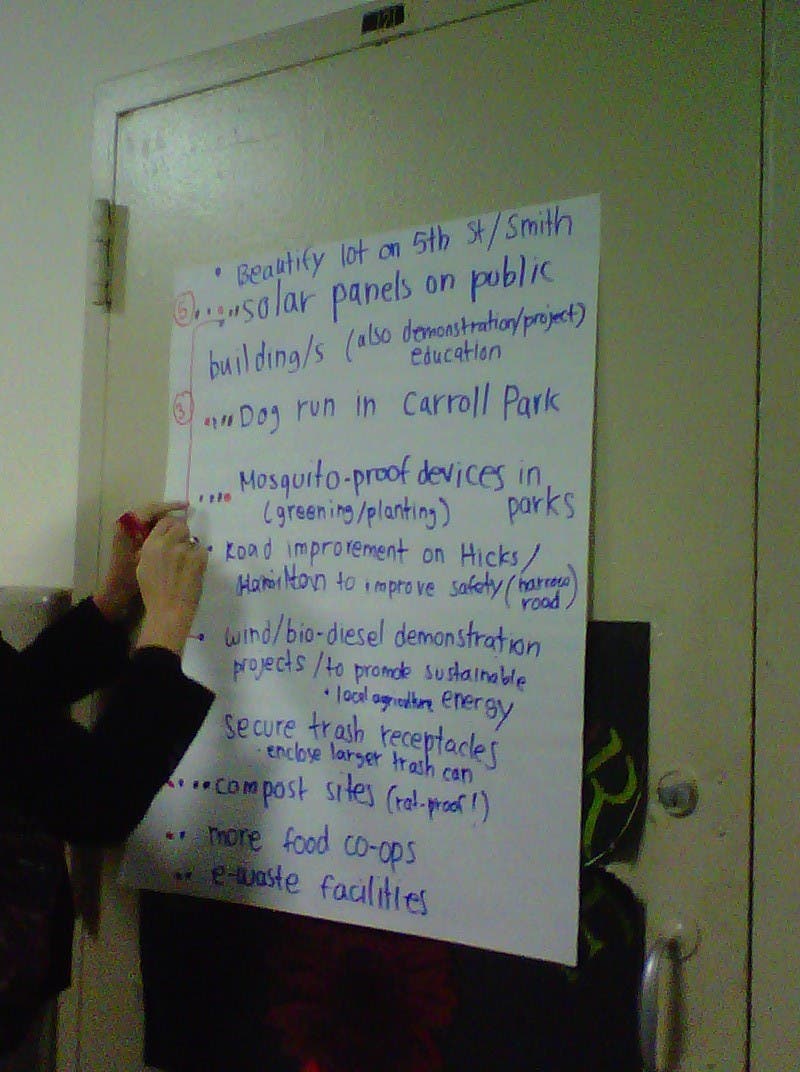 121
• Beautify lot on 5th St/Smith
5 solar panels on public
building/s (also demonstration/project)
education
3 Dog run in Carroll Park
Mosquito-proof devices in
(greening/planting) parks
• Road improvement on Hicks/
Hamilton to improve safety (narrow
road)
• wind/bio-diesel demonstration
projects/to promote sustainable
• local agriculture energy
secure trash receptacles
• enclose larger trash can
compost sites (rat-proof!)
more food co-ops
e-waste facilities
R